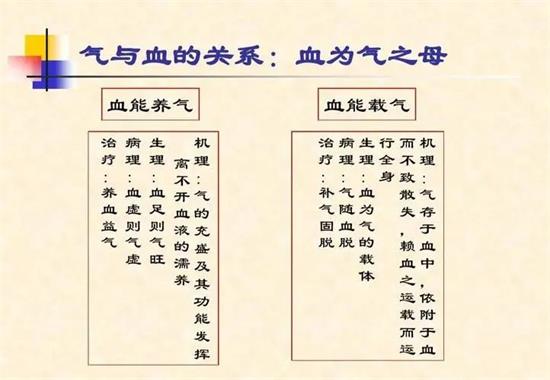 气与血的关系：血为气之母
血能养气
机理：气的充盛及其功能发挥
离不开血液的濡养
生理：血足则气旺
病理：血虚则气虚
治疗：养血益气
血能载气
机理：气存于血中，依附于血
而不致散失，赖血之运载而运
行全身
生理：血为气的载体
病理：气随血脱
治疗：补气固脱